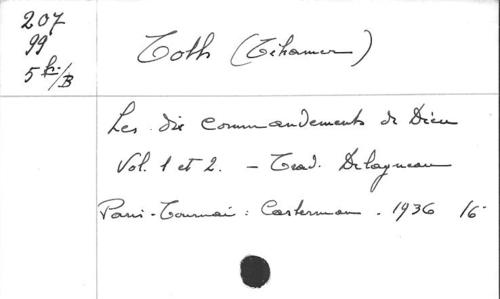 207
99
5 hi/B
Toth (Tihamer)
Les dix commandements de Dieu
Vol. 1 et 2. - Trad. Delagneau
Paris-Tournai : Casterman. 1936 16°